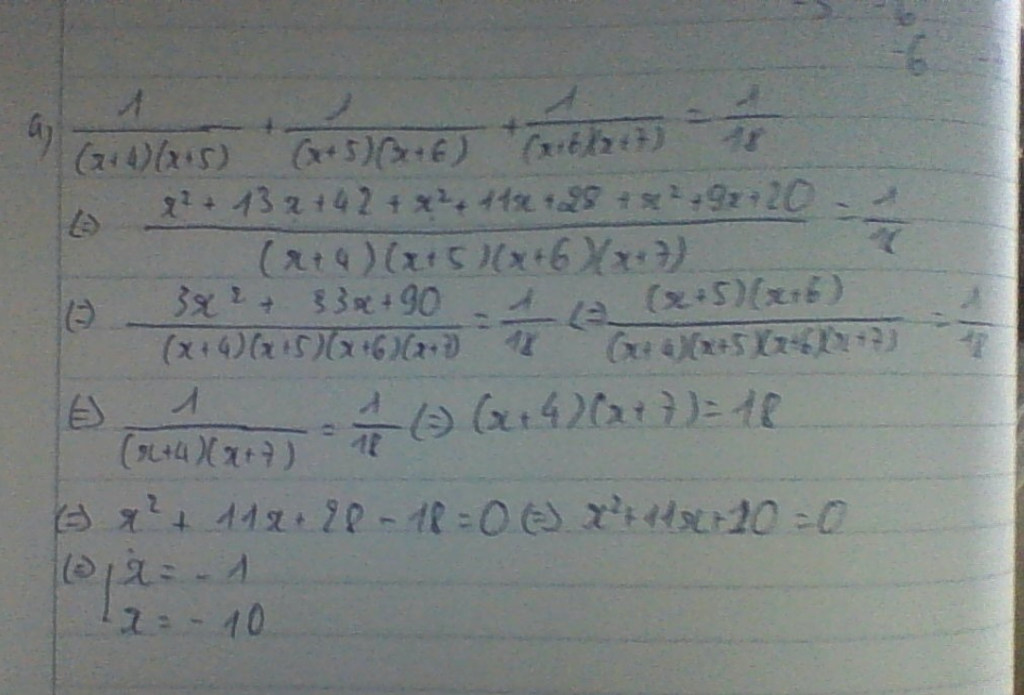 -5 -6
-6
a, 1/((x+4)(x+5)) + 1/((x+5)(x+6)) + 1/((x+6)(x+7)) = 1/18
(=) (x² + 13x + 42 + x² + 11x + 28 + x² + 9x + 20)/((x+4)(x+5)(x+6)(x+7)) = 1/18
(=) (3x² + 33x + 90)/((x+4)(x+5)(x+6)(x+7)) = 1/18 (=) ((x+5)(x+6))/((x+4)(x+5)(x+6)(x+7)) = 1/18
(=) 1/((x+4)(x+7)) = 1/18 (=) (x+4)(x+7) = 18
(=) x² + 11x + 28 - 18 = 0 (=) x² + 11x + 10 = 0
(=) [ x = -1
x = -10